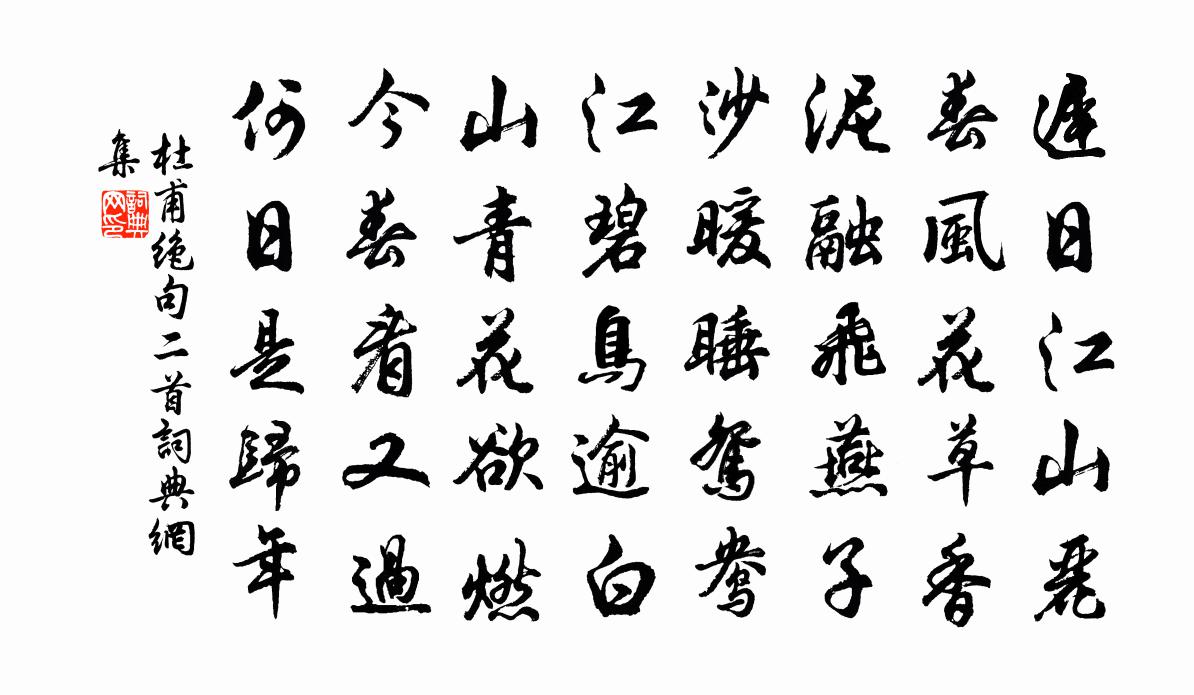 遲日江山麗
春風花草香
泥融飛燕子
沙暖睡鴛鴦
江碧鳥逾白
山青花欲燃
今春看又過
何日是歸年
杜甫絶句二首詞典網
集
詞典
网印